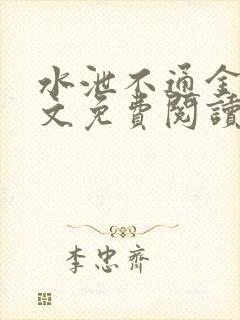 水泄不通全
文免費閱讀
李忠齊